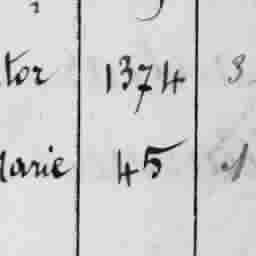 tor 1374 3
Marie 45 1